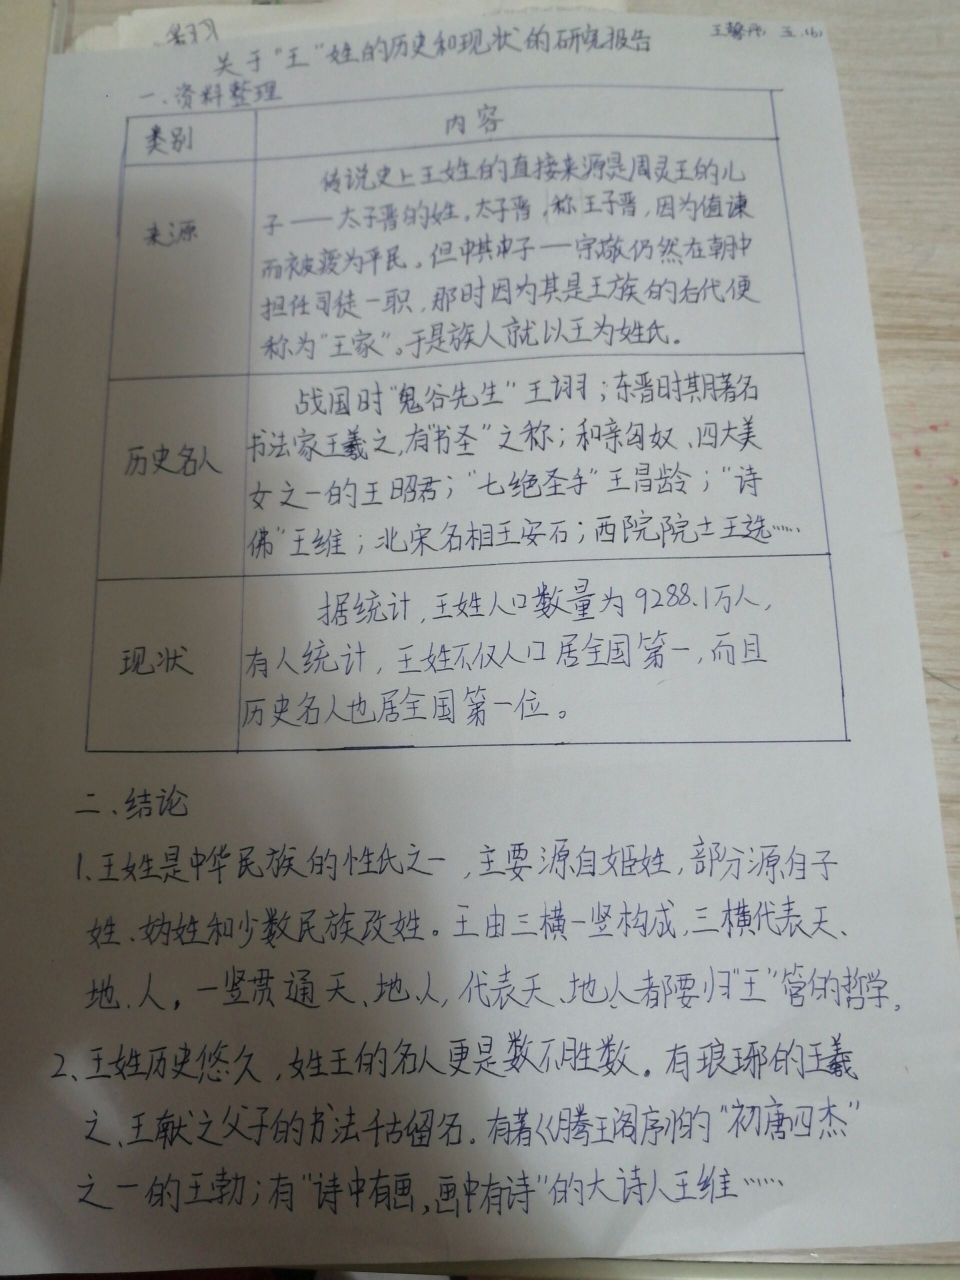 关于"王"姓的历史和现状的研究报告
一、资料整理
类别
内容
来源
传说史上王姓的直接来源是周灵王的儿
子——太子晋的姓。太子晋,称王子晋,因为值谏
而被废为平民。但其中子——宗敬仍然在朝中
担任司徒一职,那时因为其是王族的后代便
称为"王家"。于是族人就以王为姓氏。
历史名人
战国时"鬼谷先生"王诩;东晋时期著名
书法家王羲之,有"书圣"之称;和亲匈奴、四大美
女之一的王昭君;"七绝圣手"王昌龄;"诗
佛"王维;北宋名相王安石;西院院士王选……
现状
据统计,王姓人口数量为9288.1万人,
有人统计,王姓不仅人口居全国第一,而且
历史名人也居全国第一位。
二、结论
1.王姓是中华民族的性氏之一,主要源自姬姓,部分源自子
姓、妫姓和少数民族改姓。王由三横一竖构成,三横代表天、
地、人,一竖贯通天、地、人,代表天、地、人者都要归"王"管的哲学。
2、王姓历史悠久,姓王的名人更是数不胜数。有琅琊的王羲
之、王献之父子的书法千古留名。有著《腾王阁序》的"初唐四杰"
之一的王勃;有"诗中有画,画中有诗"的大诗人王维……